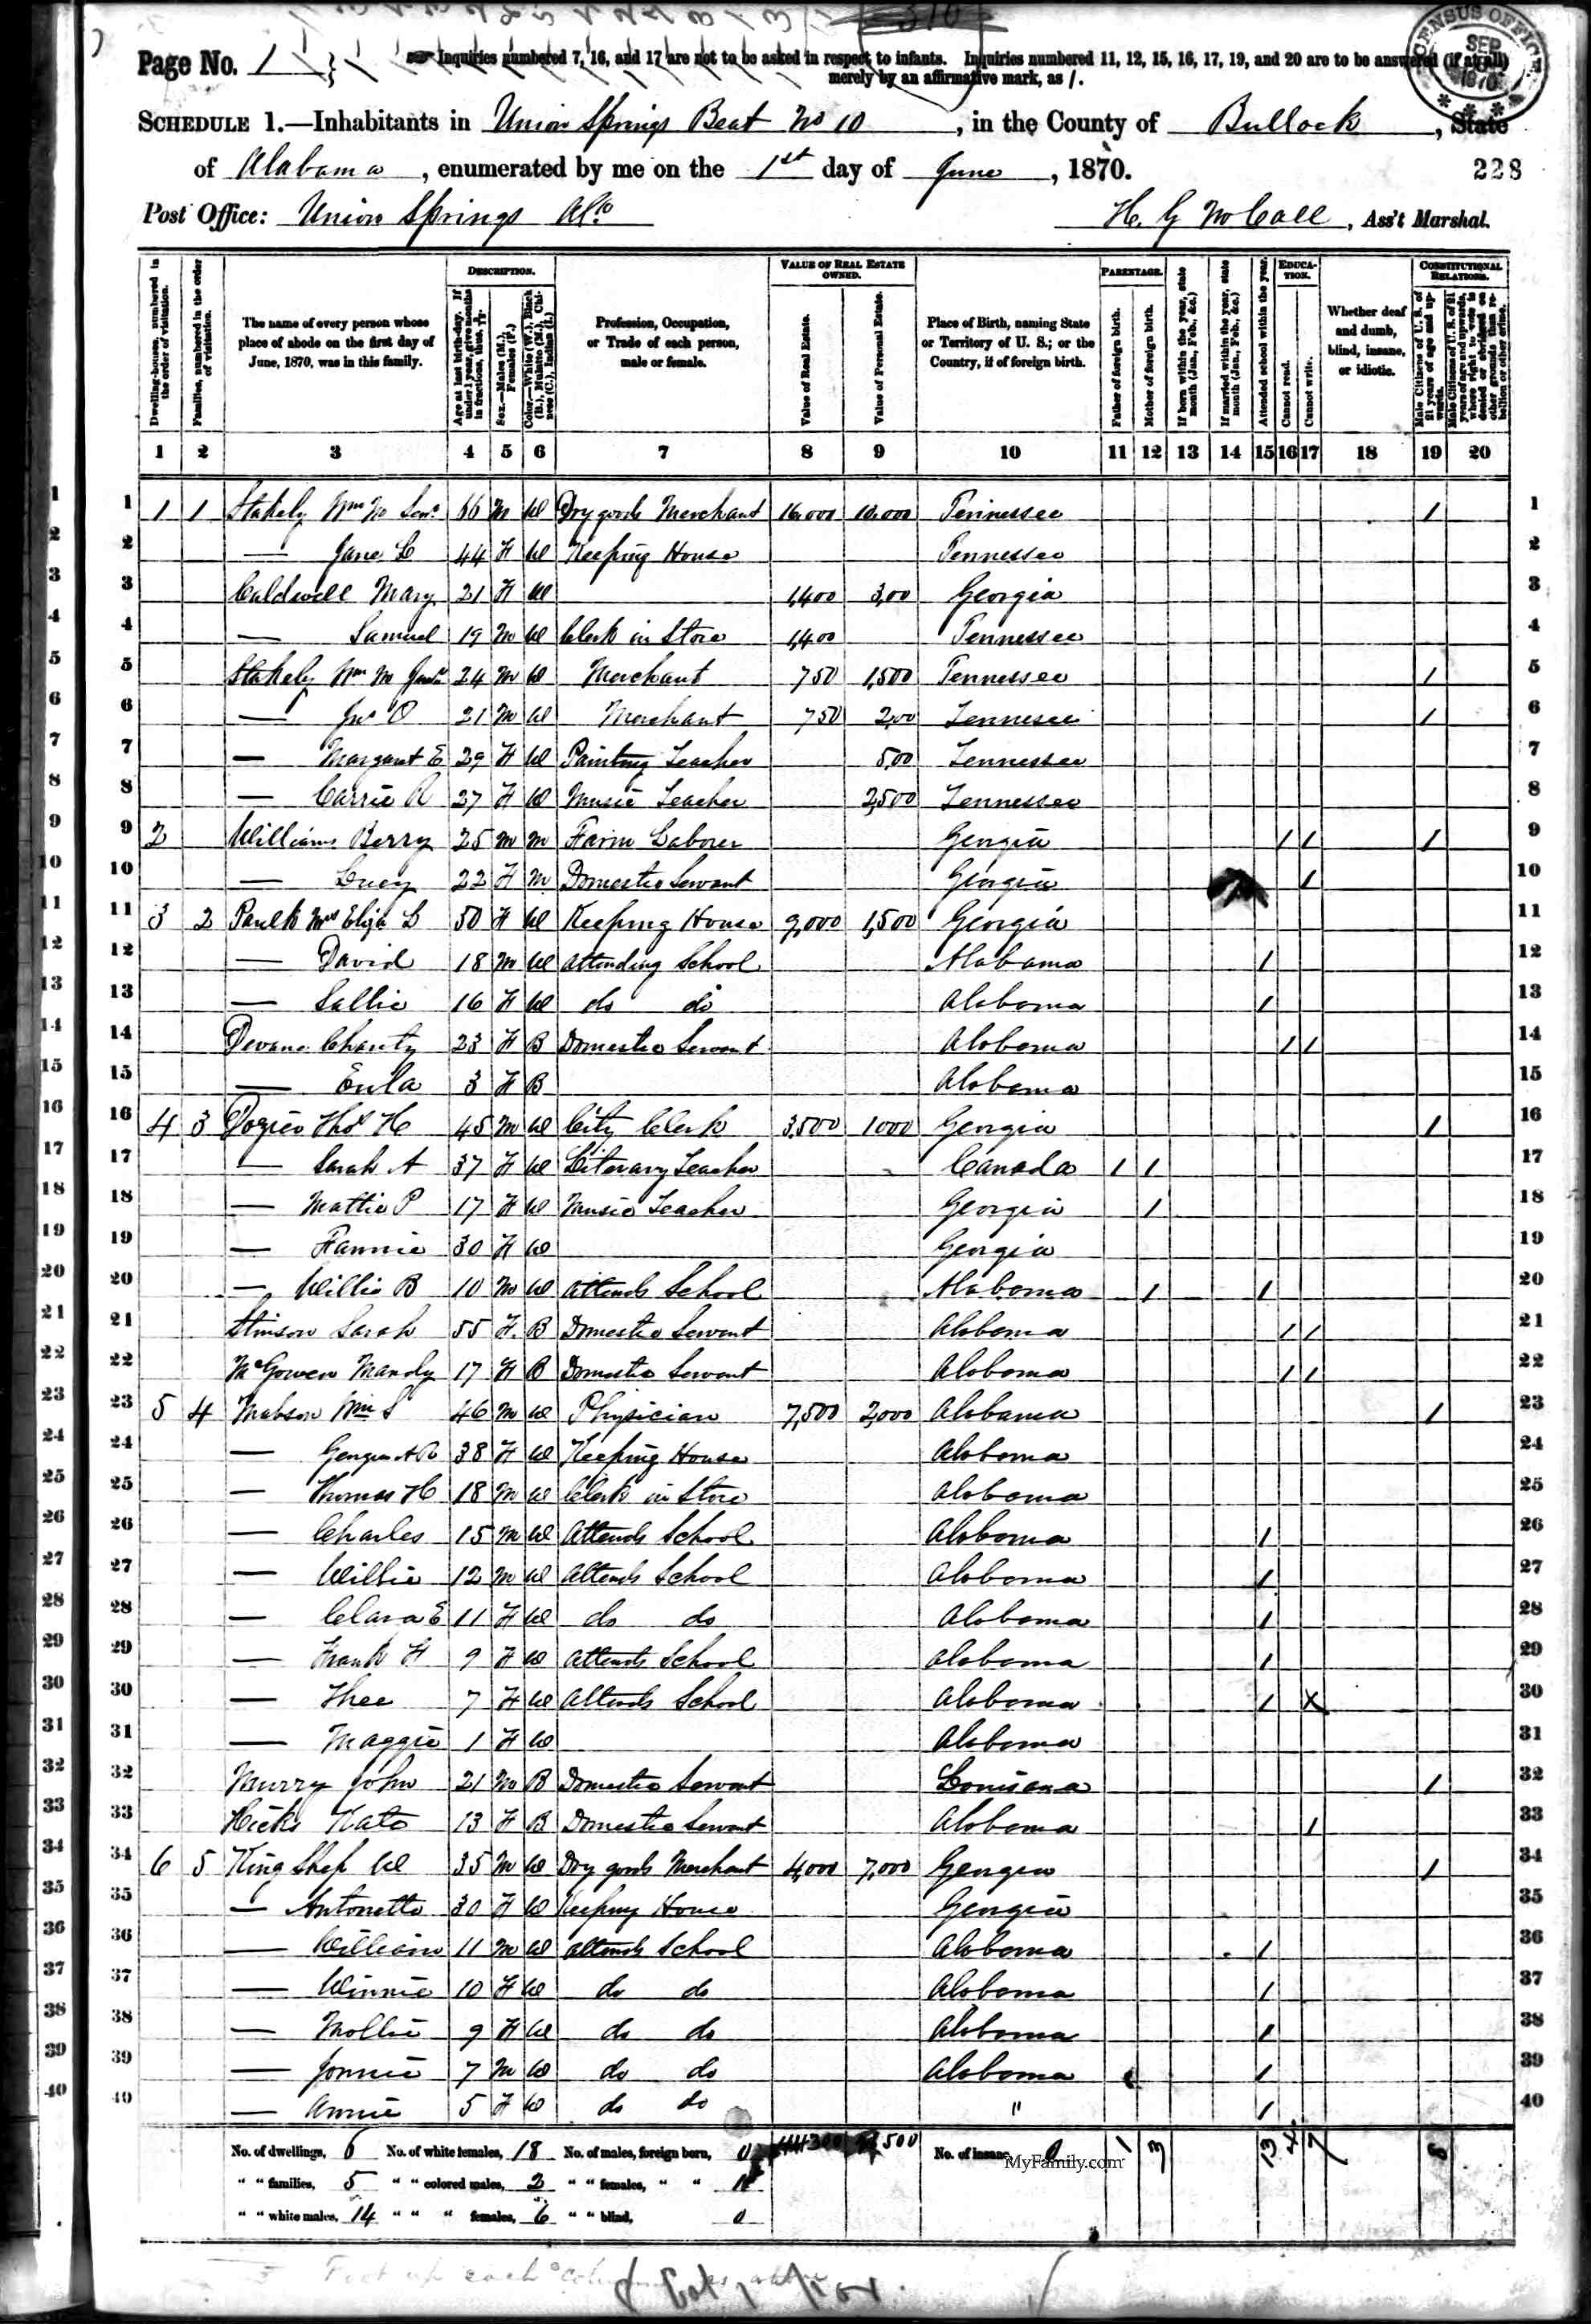 Page No. 1
Inquiries numbered 7, 16, and 17 are not to be asked in respect to infants. Inquiries numbered 11, 12, 15, 16, 17, 19, and 20 are to be answered (if at all)
merely by an affirmative mark, as /.
CENSUS OFFICE SEP 1870
SCHEDULE 1.—Inhabitants in Union Springs Beat No 10, in the County of Bullock, State
of Alabama, enumerated by me on the 1st day of June, 1870.
228
Post Office: Union Springs Ala
H. G McCall, Ass't Marshal.
Dwelling-houses, numbered in the order of visitation.
Families, numbered in the order of visitation.
The name of every person whose place of abode on the first day of June, 1870, was in this family.
DESCRIPTION.
Age at last birth-day. If under 1 year, give months in fractions, thus, 3/12
Sex.—Males (M.), Females (F.)
Color.—White (W.), Black (B.), Mulatto (M.), Chinese (C.), Indian (I.)
Profession, Occupation, or Trade of each person, male or female.
VALUE OF REAL ESTATE OWNED.
Value of Real Estate.
Value of Personal Estate.
Place of Birth, naming State or Territory of U. S.; or the Country, if of foreign birth.
PARENTAGE.
Father of foreign birth.
Mother of foreign birth.
If born within the year, state month (Jan., Feb., &c.)
If married within the year, state month (Jan., Feb., &c.)
Attended school within the year.
EDUCATION.
Cannot read.
Cannot write.
Whether deaf and dumb, blind, insane, or idiotic.
CONSTITUTIONAL RELATIONS.
Male Citizens of U. S. of 21 years of age and upwards.
Male Citizens of U. S. of 21 years of age and upwards, where right to vote is denied or abridged on other grounds than rebellion or other crime.
1 2 3 4 5 6 7 8 9 10 11 12 13 14 15 16 17 18 19 20
1 1 1 Stakely Wm M Senr 66 M W Dry goods Merchant 16,000 10,000 Tennessee / 1
2 — Jane L 44 F W Keeping House Tennessee 2
3 Caldwell Mary 21 F W 1,400 3,00 Georgia 3
4 — Samuel 19 M W Clerk in Store 1,400 Tennessee 4
5 Stakely Wm M 24 M W Merchant 750 1,500 Tennessee / 5
6 — Jno O 21 M W Merchant 750 2,00 Tennessee / 6
7 — Margaret E 29 F W Painting Teacher 5,00 Tennessee 7
8 — Carrie R 27 F W Music Teacher 2,500 Tennessee 8
9 2 Williams Berry 25 M M Farm Laborer Georgia / / / 9
10 — Lucy 22 F M Domestic Servant Georgia / 10
11 3 2 Paulk Mrs Eliza L 50 F W Keeping House 9,000 1,500 Georgia 11
12 — David 18 M W attending School Alabama / 12
13 — Sallie 16 F W do do Alabama / 13
14 Charity 23 F B Domestic Servant Alabama / / 14
15 — Eula 3 F B Alabama 15
16 4 3 Dozier Thos H 45 M W City Clerk 3,500 1000 Georgia / 16
17 — Sarah A 37 F W Literary Teacher Canada / / 17
18 — Mattie P 17 F W Music Teacher Georgia / 18
19 — Fannie 30 F W Georgia 19
20 — Willie B 10 M W attends School Alabama / / 20
21 Stinson Sarah 55 F. B Domestic Servant Alabama / / 21
22 McGowen Mandy 17 F B Domestic Servant Alabama / / 22
23 5 4 Mabson Wm S 46 M W Physician 7,500 2,000 Alabama / 23
24 — 38 F W Keeping House Alabama 24
25 — Thomas H 18 M W Clerk in Store Alabama 25
26 — Charles 15 M W Attends School Alabama / 26
27 — Willie 12 M W Attends School Alabama / 27
28 — Clara E 11 F W do do Alabama / 28
29 — Frank F 9 F W Attends School Alabama / 29
30 — Thee 7 F W Attends School Alabama / X 30
31 — Maggie 1 F W Alabama 31
32 Murry John 21 M B Domestic Servant Louisana / 32
33 Hicks Kate 13 F B Domestic Servant Alabama / 33
34 6 5 King Shep W 35 M W Dry goods Merchant 4,000 7,000 Georgia / 34
35 — Antonette 30 F W Keeping House Georgia 35
36 — William 11 M W attends School Alabama / 36
37 — Winnie 10 F W do do Alabama / 37
38 — Mollie 9 F W do do Alabama / 38
39 — Jonnie 7 M W do do Alabama / 39
40 — Annie 5 F W do do " / 40
No. of dwellings, 6 No. of white females, 18 No. of males, foreign born, 0 No. of insane, 0 1 3 13 7 8
" " families, 5 " " colored males, 2 " " females, " "
" " white males, 14 " " " females, 6 " " blind, 0
MyFamily.com